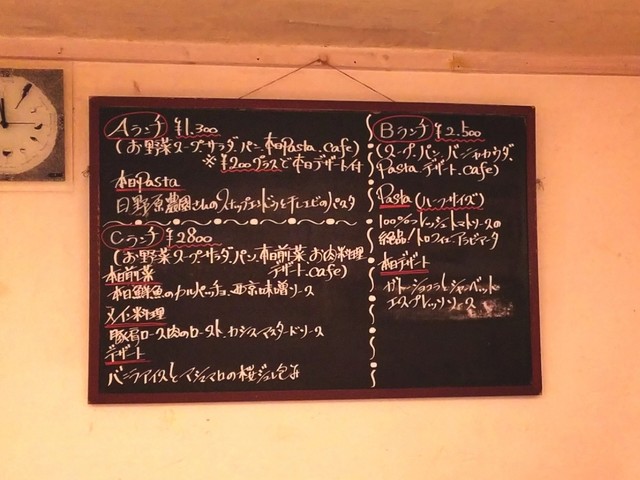 Aランチ ¥1,300
(お野菜スープ、サラダ、パン、本日Pasta、cafe)
※¥200プラスで本日デザート付
本日Pasta
日野原農園さんのスナップエンドウとチビエビのパスタ
Cランチ ¥2800
(お野菜スープ、サラダ、パン、本日前菜、お肉料理
デザート、cafe)
本日前菜
本日鮮魚のカルパッチョ、西京味噌ソース
メイン料理
豚肩ロース肉のロースト、カシスマスタードソース
デザート
バニラアイスとマシュマロの桜ジュレ包み
Bランチ ¥2,500
(スープ、パン、バーニャカウダ、
Pasta、デザート、cafe)
Pasta (ハーフサイズ)
100%フレッシュトマトソースの
絶品!トロフィエアラビアータ
本日デザート
ガトーショコラとシャーベット
エスプレッソソース